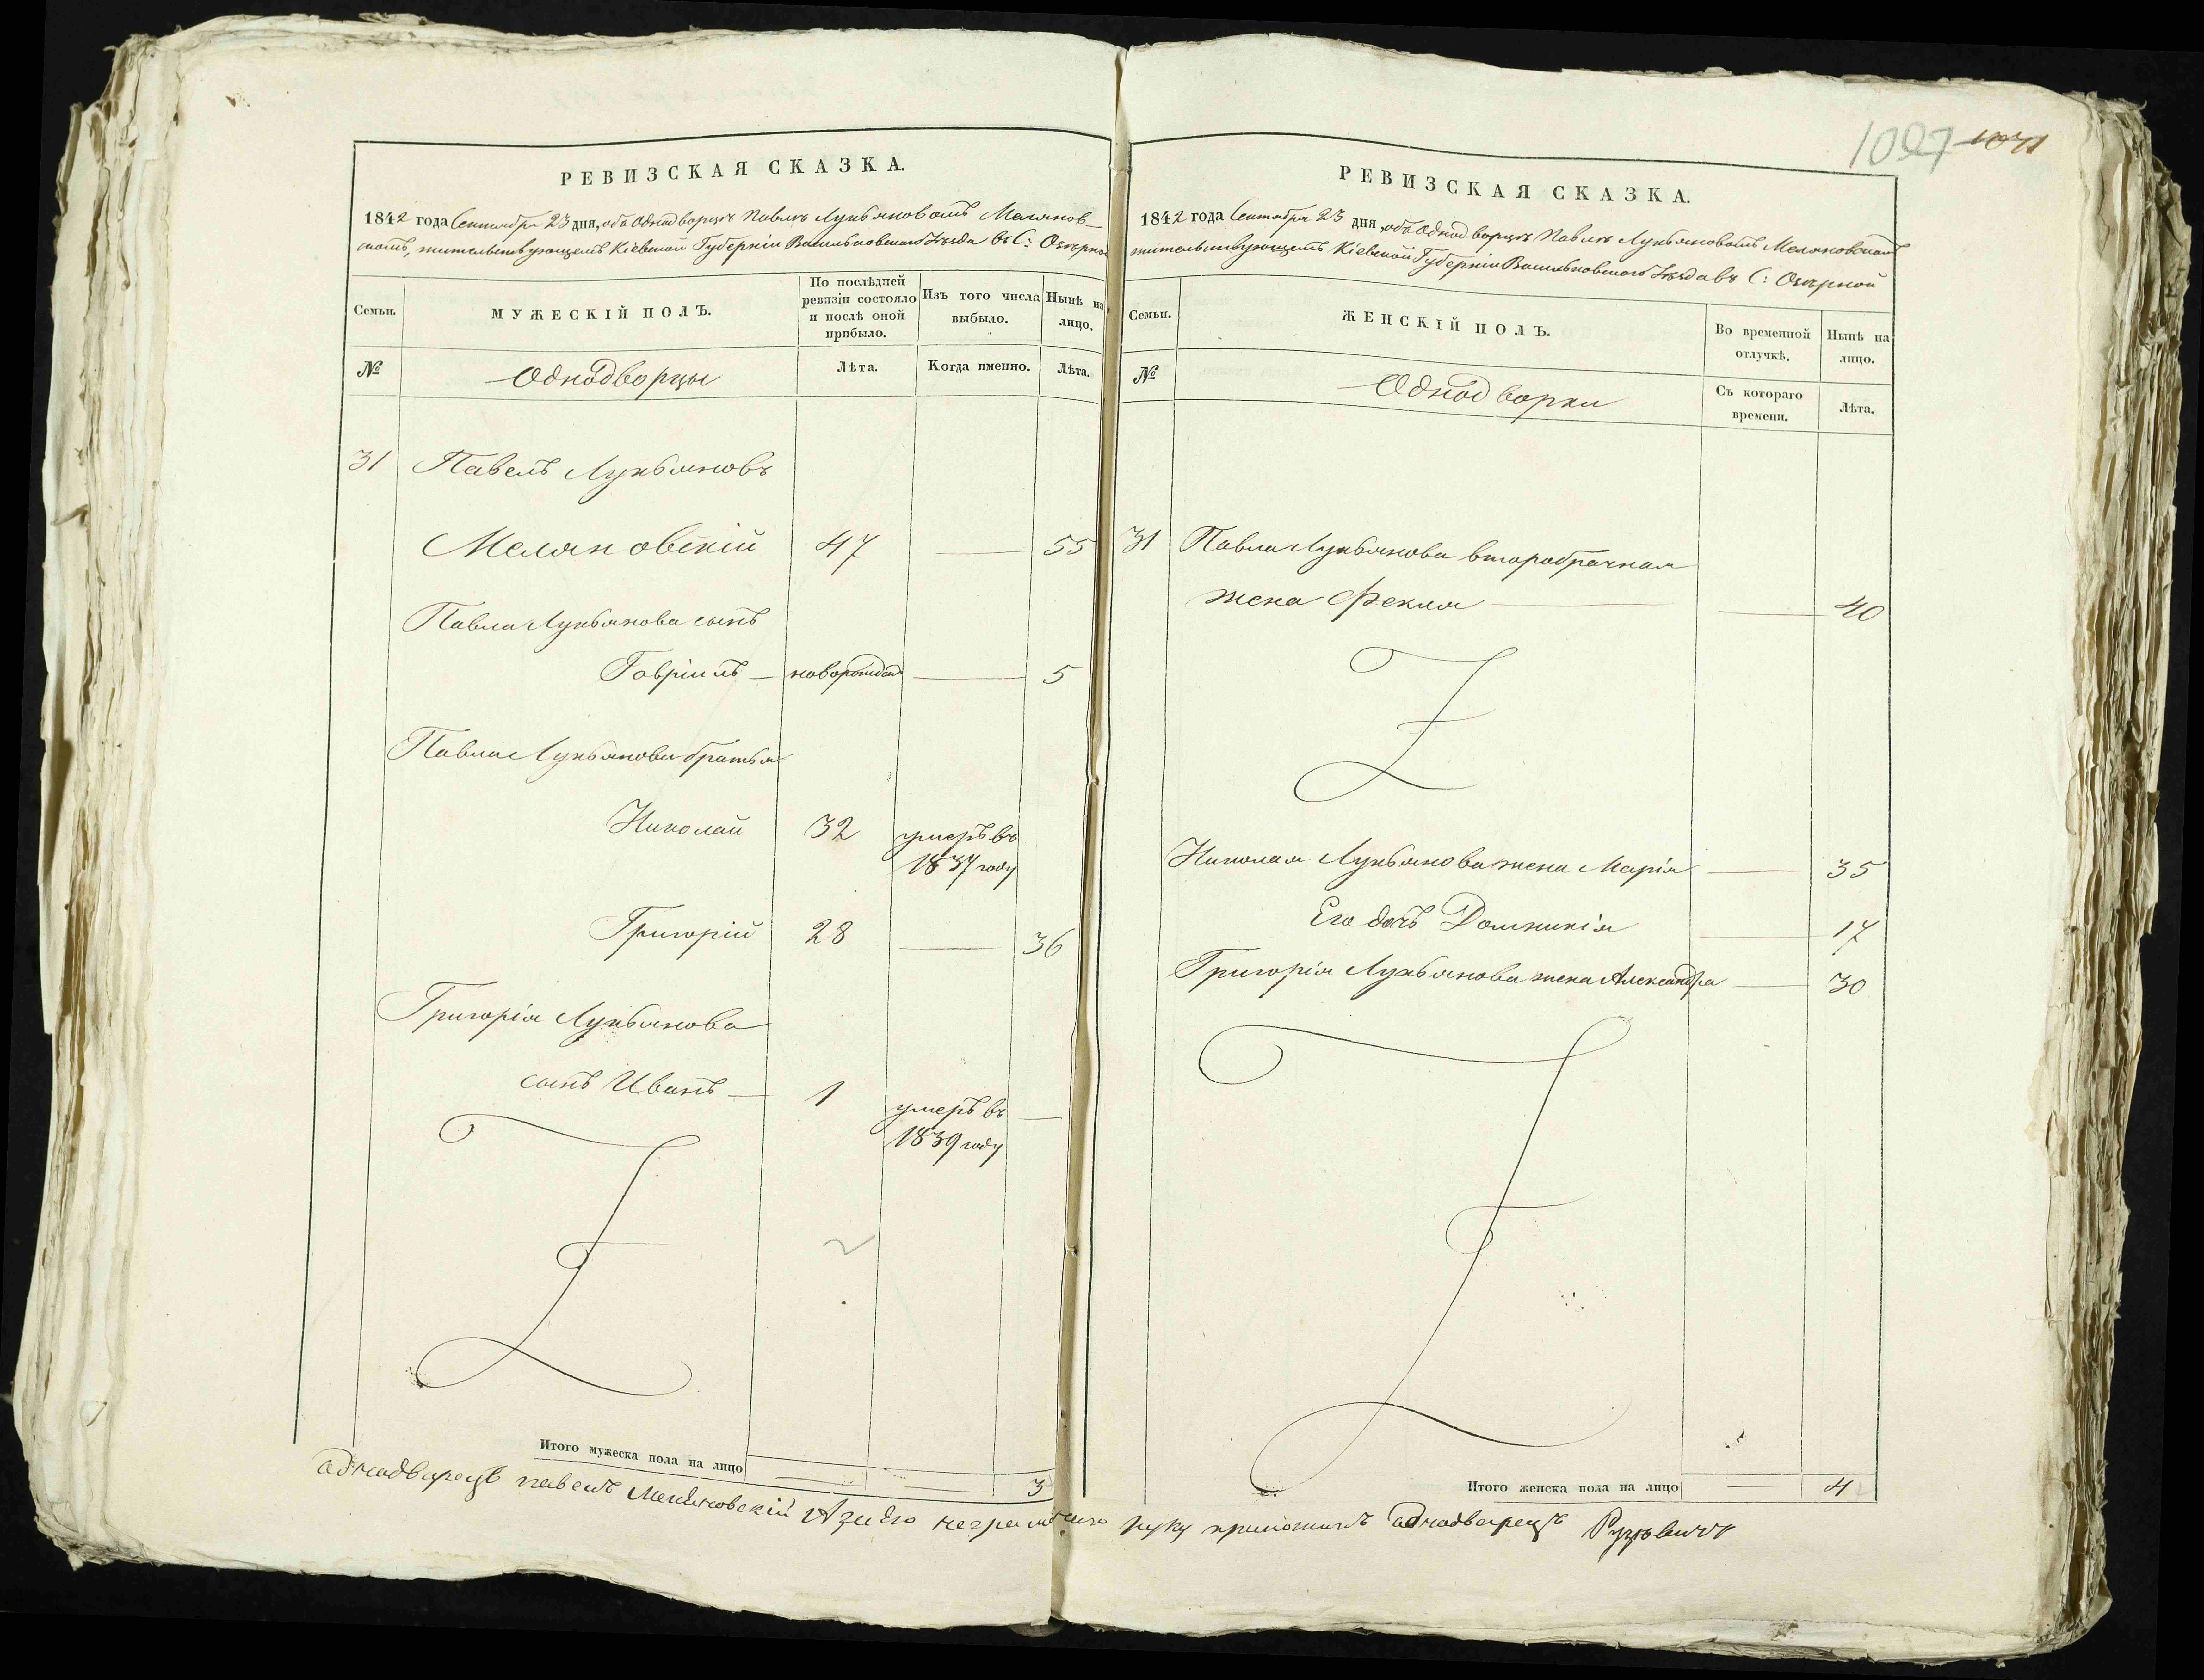 1027 1071
РЕВИЗСКАЯ СКАЗКА.
1842 года Сентября 23 дня, объ Однодворцѣ Павлѣ Лукьяновомъ Меляновскомъ, жительствующемъ Кіевской Губерніи Васильковскаго Уѣзда въ С: Озѣрной
Семьи.
МУЖЕСКІЙ ПОЛЪ.
По послѣдней ревизіи состояло и послѣ оной прибыло.
Изъ того числа выбыло.
Нынѣ на лицо.
№
Однодворцы
Лѣта.
Когда именно.
Лѣта.
31 Павелъ Лукьяновъ
Меляновскій 47 — 55
Павла Лукьянова сынъ
Гавріилъ — новорожден — 5
Павла Лукьянова братья
Николай 32 умеръ въ
1837 году
Григорій 28 — 36
Григорія Лукьянова
сынъ Иванъ — 1 умеръ въ —
1839 году
Итого мужеска пола на лицо — — 3
РЕВИЗСКАЯ СКАЗКА.
1842 года Сентября 23 дня, объ Однодворцѣ Павлѣ Лукьяновомъ Меляновскомъ
жительствующемъ Кіевской Губерніи Васильковскаго Уѣзда въ С: Озѣрной
Семьи.
ЖЕНСКІЙ ПОЛЪ.
Во временной отлучкѣ.
Нынѣ на лицо.
№
Однодворки
Съ котораго времени.
Лѣта.
31 Павла Лукьянова второбрачная
жена Фекла — — 40
Николая Лукьянова жена Марія — 35
Его дочь Домникія — 17
Григорія Лукьянова жена Александра — 30
Итого женска пола на лицо — 4
однадварецъ павелъ Меляновскій руку приложилъ однадварецъ